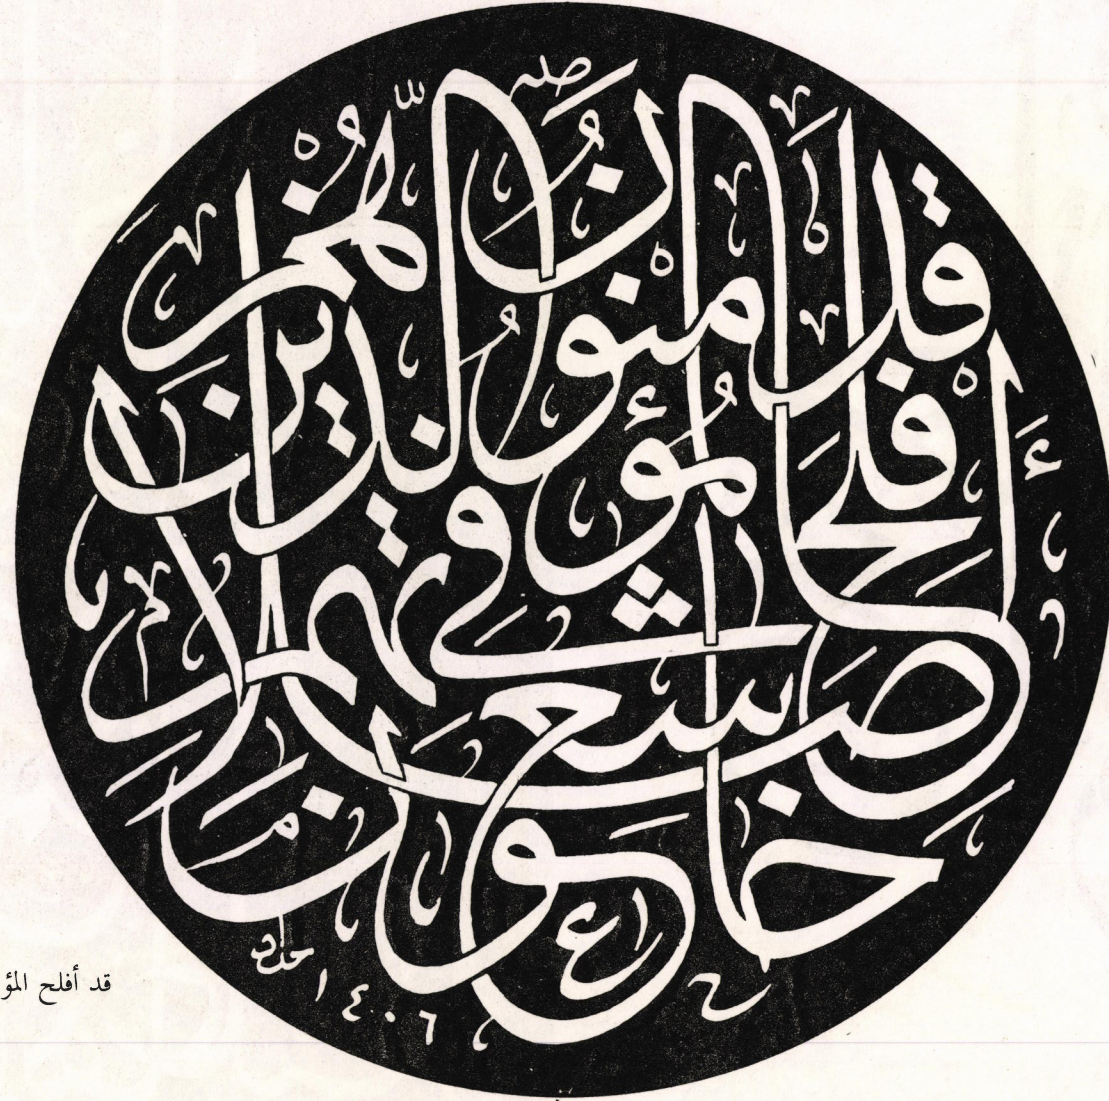 قد أفلح المؤمنون الذين هم في صلاتهم خاشعون
١٤٠٦
قد أفلح المؤ